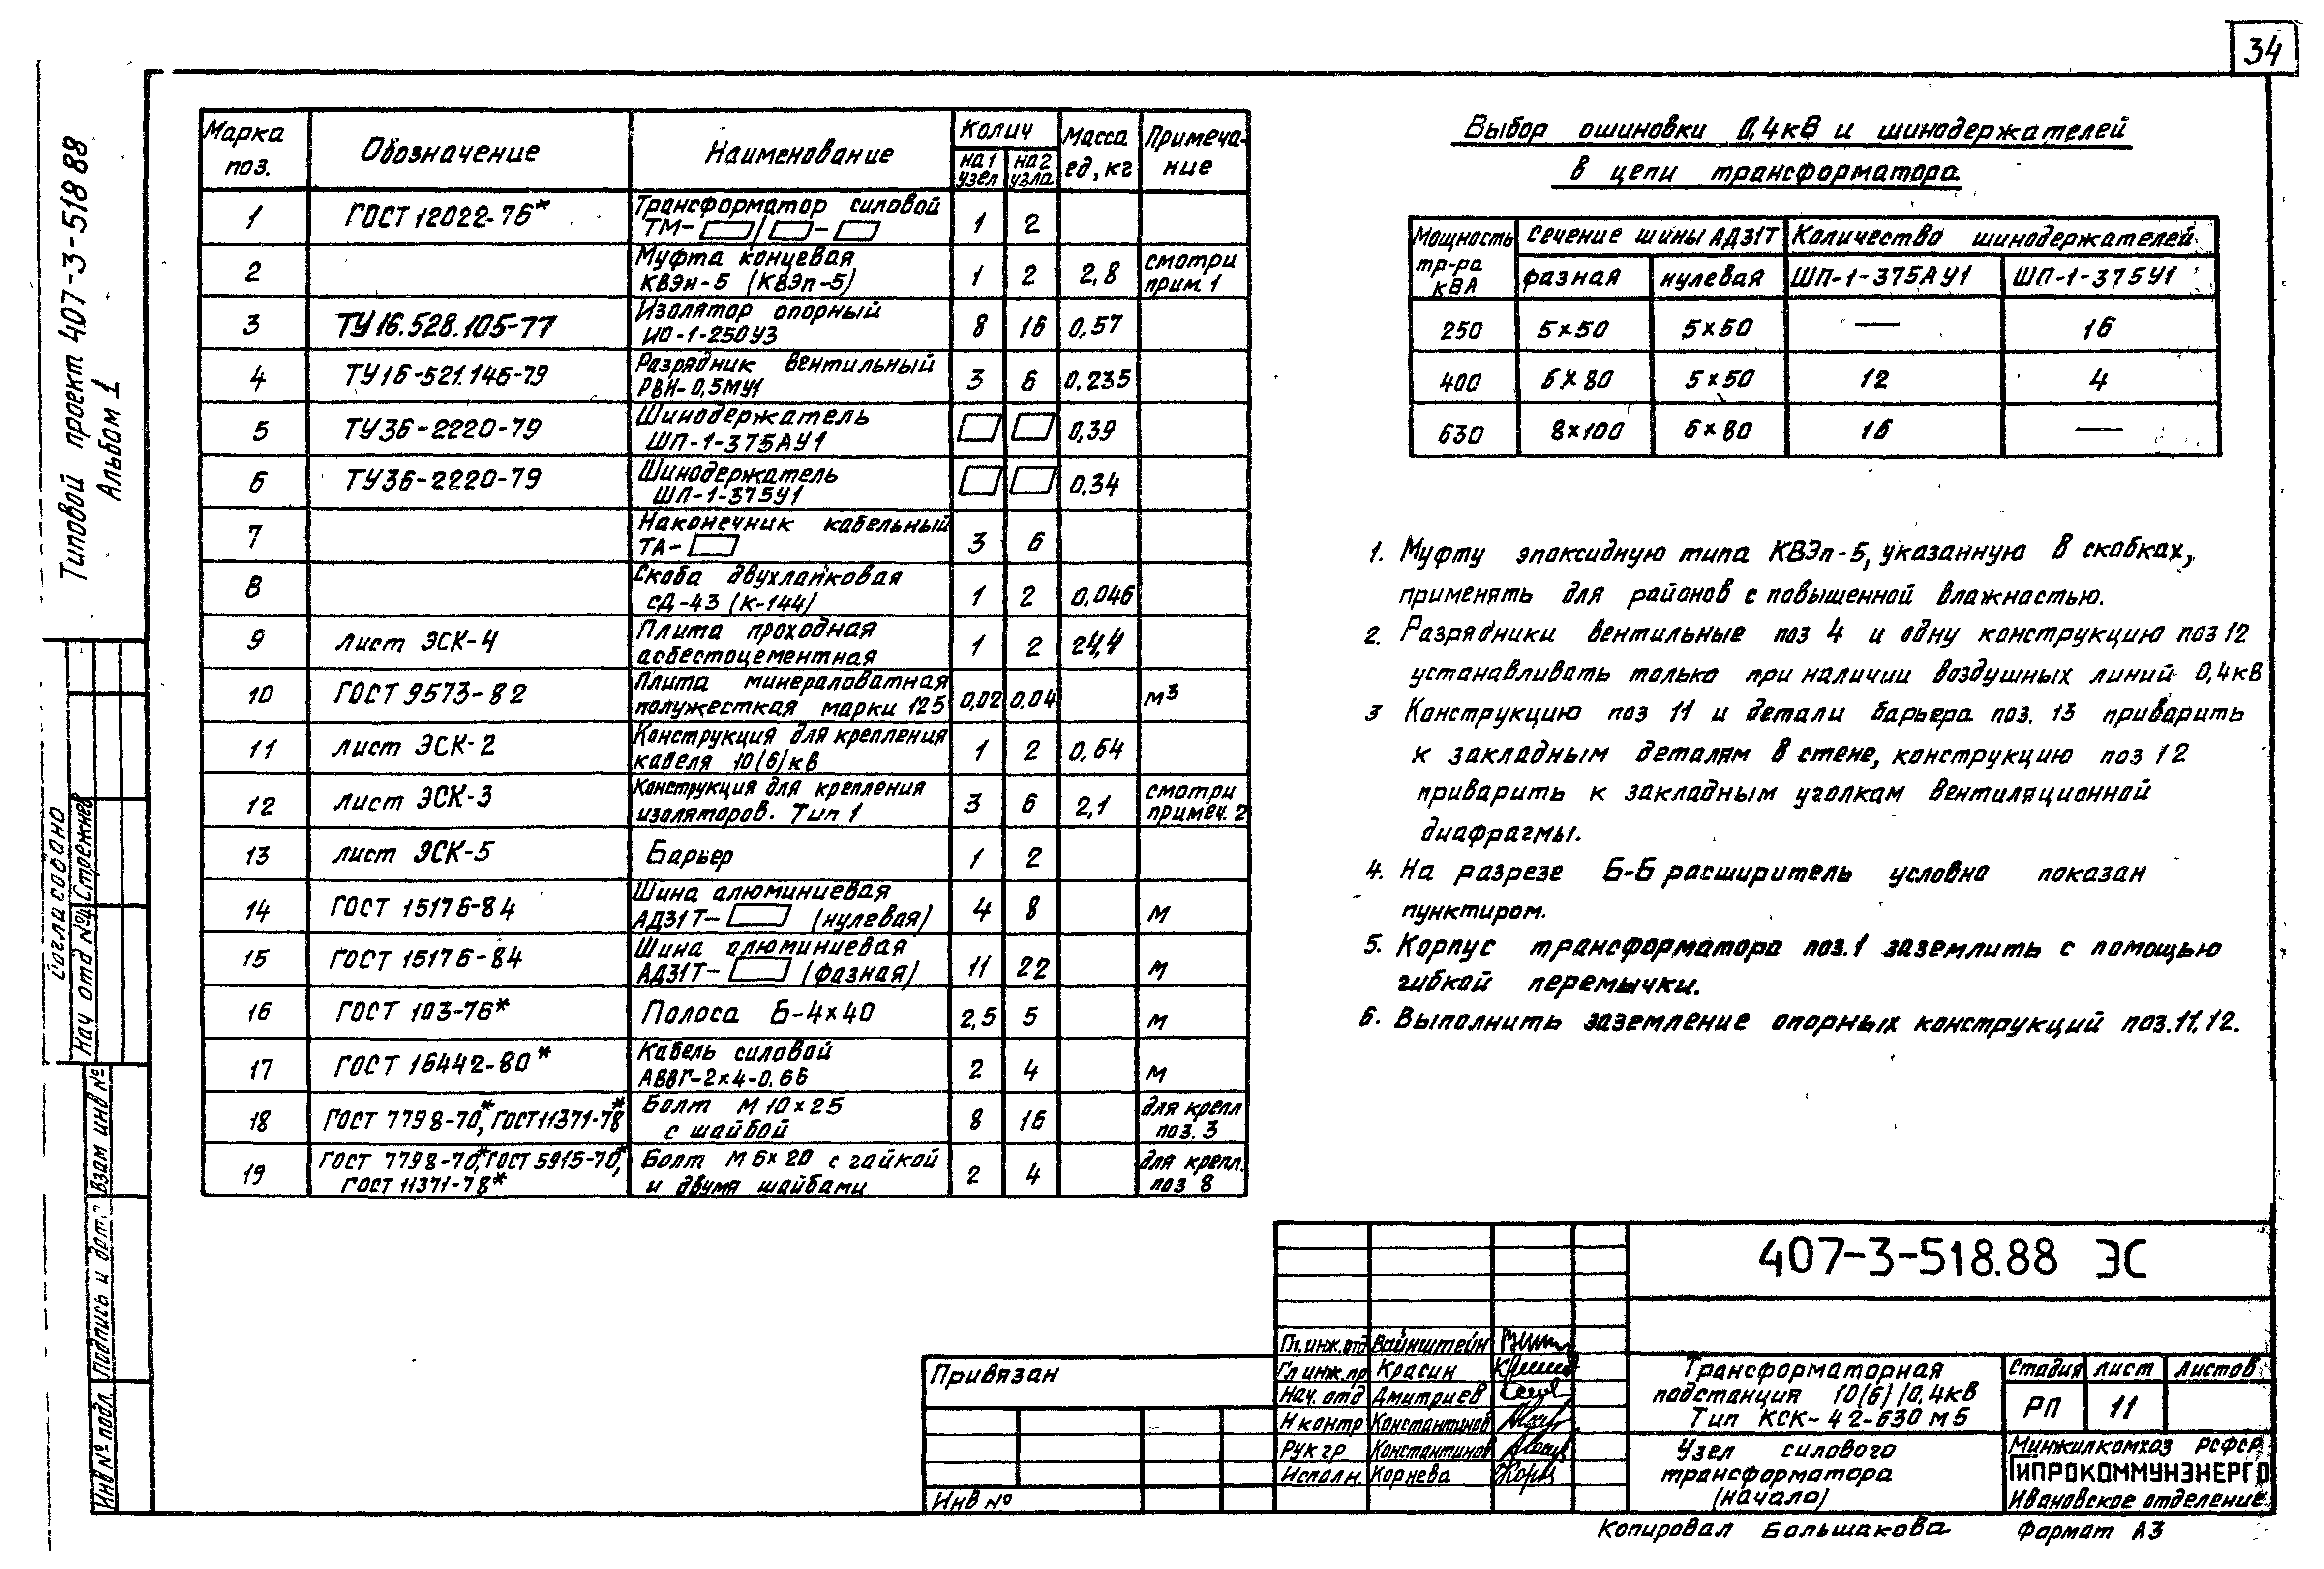 34
Типовой проект 407-3-518 88
Альбом 1
Марка поз.
Обозначение
Наименование
Колич
на 1 узел
на 2 узла
Масса ед, кг
Примеча-ние
1 ГОСТ 12022-76* Трансформатор силовой 1 2
ТМ-
2 Муфта концевая 1 2 2,8 смотри
КВЭн-5 (КВЭп-5) прим. 1
3 ТУ 16.528.105-77 Изолятор опорный 8 16 0,57
ИО-1-250У3
4 ТУ16-521.146-79 Разрядник вентильный 3 6 0.235
РВН-0,5МУ1
5 ТУ36-2220-79 Шинодержатель 0,39
ШП-1-375АУ1
6 ТУ36-2220-79 Шинодержатель 0,34
ШП-1-375У1
7 Наконечник кабельный 3 6
ТА-
8 Скоба двухлапковая 1 2 0,046
СД-43 (К-144)
9 лист ЭСК-4 Плита проходная 1 2 24,4
асбестоцементная
10 ГОСТ 9573-82 Плита минераловатная 0,02 0,04 м³
полужесткая марки 125
11 лист ЭСК-2 Конструкция для крепления 1 2 0,64
кабеля 10(6)кв
12 лист ЭСК-3 Конструкция для крепления 3 6 2,1 смотри
изоляторов. Тип 1 примеч. 2
13 лист ЭСК-5 Барьер 1 2
14 ГОСТ 15176-84 Шина алюминиевая 4 8 м
АД31Т- (нулевая)
15 ГОСТ 15176-84 Шина алюминиевая 11 22 м
АД31Т- (фазная)
16 ГОСТ 103-76* Полоса Б-4×40 2,5 5 м
17 ГОСТ 16442-80* Кабель силовой 2 4 м
АВВГ-2×4-0.66
18 ГОСТ 7798-70*, ГОСТ 11371-78* Болт М 10×25 8 16 для крепл
с шайбой поз. 3
19 ГОСТ 7798-70*, ГОСТ 5915-70*, Болт М 6×20 с гайкой 2 4 для крепл.
ГОСТ 11371-78* и двумя шайбами поз 8
Выбор ошиновки 0,4кВ и шинодержателей
в цепи трансформатора
Мощность тр-ра кВА
Сечение шины АД31Т
Количество шинодержателей
фазная нулевая ШП-1-375АУ1 ШП-1-375У1
250 5×50 5×50 — 16
400 6×80 5×50 12 4
630 8×100 6×80 16 —
1. Муфту эпоксидную типа КВЭп-5, указанную в скобках,
применять для районов с повышенной влажностью.
2. Разрядники вентильные поз 4 и одну конструкцию поз 12
устанавливать только при наличии воздушных линий 0,4кВ
3 Конструкцию поз 11 и детали барьера поз. 13 приварить
к закладным деталям в стене, конструкцию поз 12
приварить к закладным уголкам вентиляционной
диафрагмы.
4. На разрезе Б-Б расширитель условно показан
пунктиром.
5. Корпус трансформатора поз.1 заземлить с помощью
гибкой перемычки.
6. Выполнить заземление опорных конструкций поз.11,12.
согласовано
Нач отд №4 Стрежнев
Взам инв №
Подпись и дата
Инв № подл.
Привязан
Инв №
407-3-518.88 ЭС
Гл.инж.отд Вайнштейн
Гл инж.пр Красин
Нач. отд Дмитриев
Н контр Константинов
Рук гр Константинов
Исполн. Корнева
Трансформаторная
подстанция 10(6)/0,4кв
Тип КСК-42-630 М5
Стадия лист листов
РП 11
Узел силового
трансформатора
(начало)
Минжилкомхоз РСФСР
ГИПРОКОММУНЭНЕРГО
Ивановское отделение
Копировал Большакова Формат А3